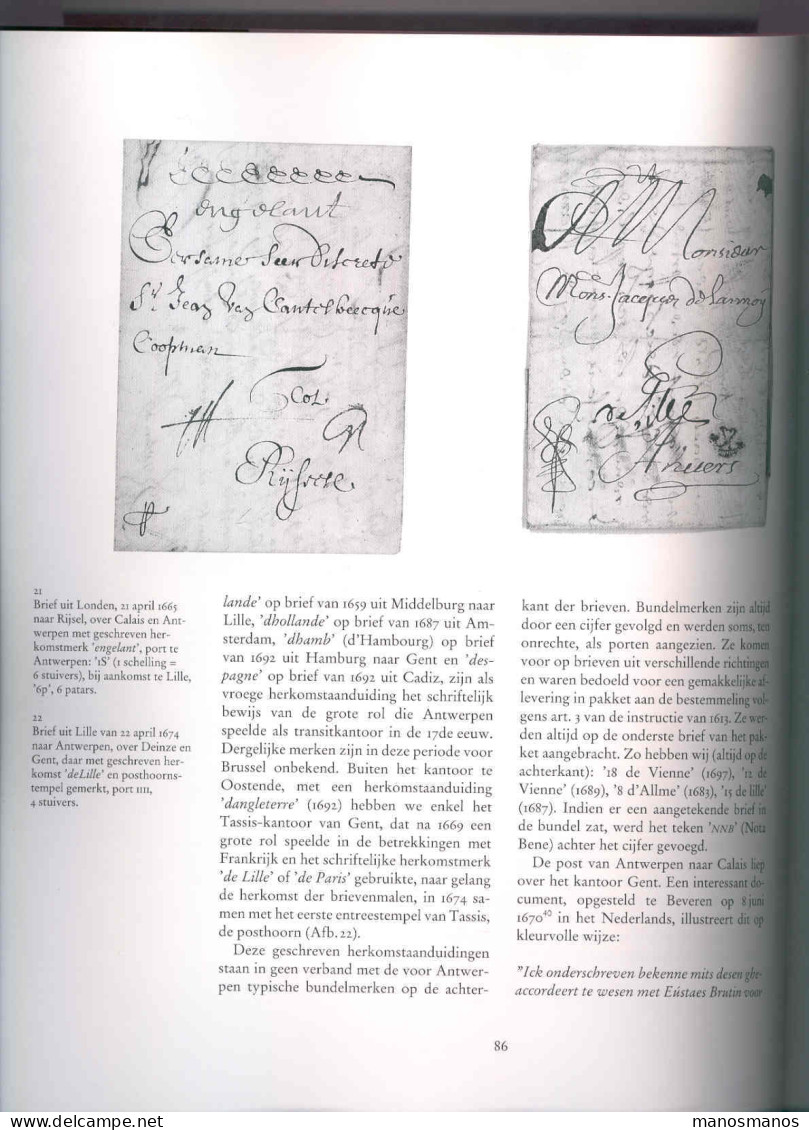 engelant
Eersame seer discrete
Sr Jean Van Cantelbeecque
Coopman
Col.
Rijssele
A Monsieur
Mons. Jacques de Lannoy
de Lille
Anvers
21
Brief uit Londen, 21 april 1665
naar Rijsel, over Calais en Ant-
werpen met geschreven her-
komstmerk 'engelant', port te
Antwerpen: '1S' (1 schelling =
6 stuivers), bij aankomst te Lille,
'6p', 6 patars.
22
Brief uit Lille van 22 april 1674
naar Antwerpen, over Deinze en
Gent, daar met geschreven her-
komst 'deLille' en posthoorns-
tempel gemerkt, port IIII,
4 stuivers.
lande' op brief van 1659 uit Middelburg naar
Lille, 'dhollande' op brief van 1687 uit Am-
sterdam, 'dhamb' (d'Hambourg) op brief
van 1692 uit Hamburg naar Gent en 'des-
pagne' op brief van 1692 uit Cadiz, zijn als
vroege herkomstaanduiding het schriftelijk
bewijs van de grote rol die Antwerpen
speelde als transitkantoor in de 17de eeuw.
Dergelijke merken zijn in deze periode voor
Brussel onbekend. Buiten het kantoor te
Oostende, met een herkomstaanduiding
'dangleterre' (1692) hebben we enkel het
Tassis-kantoor van Gent, dat na 1669 een
grote rol speelde in de betrekkingen met
Frankrijk en het schriftelijke herkomstmerk
'de Lille' of 'de Paris' gebruikte, naar gelang
de herkomst der brievenmalen, in 1674 sa-
men met het eerste entreestempel van Tassis,
de posthoorn (Afb. 22).
Deze geschreven herkomstaanduidingen
staan in geen verband met de voor Antwer-
pen typische bundelmerken op de achter-
kant der brieven. Bundelmerken zijn altijd
door een cijfer gevolgd en werden soms, ten
onrechte, als porten aangezien. Ze komen
voor op brieven uit verschillende richtingen
en waren bedoeld voor een gemakkelijke af-
levering in pakket aan de bestemmeling vol-
gens art. 3 van de instructie van 1613. Ze wer-
den altijd op de onderste brief van het pak-
ket aangebracht. Zo hebben wij (altijd op de
achterkant): '18 de Vienne' (1697), '12 de
Vienne' (1689), '8 d'Allme' (1683), '15 de lille'
(1687). Indien er een aangetekende brief in
de bundel zat, werd het teken 'NNB' (Nota
Bene) achter het cijfer gevoegd.
De post van Antwerpen naar Calais liep
over het kantoor Gent. Een interessant do-
cument, opgesteld te Beveren op 8 juni
1670⁴⁰ in het Nederlands, illustreert dit op
kleurvolle wijze:
"Ick onderschreven bekenne mits desen ghe-
accordeert te wesen met Eústaes Brutin voor
86
manosmanos